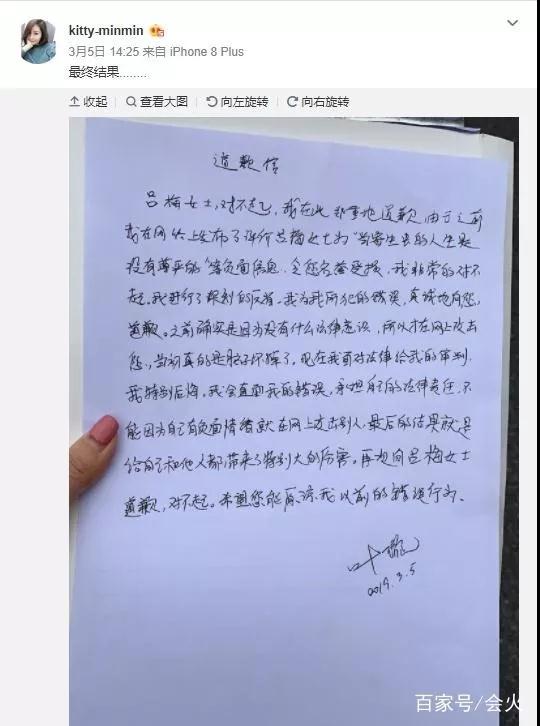 kitty-minmin
3月5日 14:25 来自 iPhone 8 Plus
最终结果........
收起 查看大图 向左旋转 向右旋转
道歉信
吕梅女士,对不起,我在此郑重地道歉,由于之前
我在网络上发布了评价吕梅女士为"当寄生虫的人生是
没有尊严的"等负面信息,令您名誉受损,我非常的对不
起,我进行了深刻的反省,我为我所犯的错误,真诚地向您
道歉。之前确实是因为没有什么法律意识,所以才在网上攻击
您,当初真的是脑子坏掉了,现在我面对法律给我的审判,
我特别后悔,我会直面我的错误,承担自己的法律责任,不
能因为自己有负面情绪就在网上攻击别人,最后的结果就是
给自己和他人都带来了特别大的伤害。再想向吕梅女士
道歉,对不起。希望您能原谅我以前的错误行为、
叶璇
2019.3.5
百家号/会火